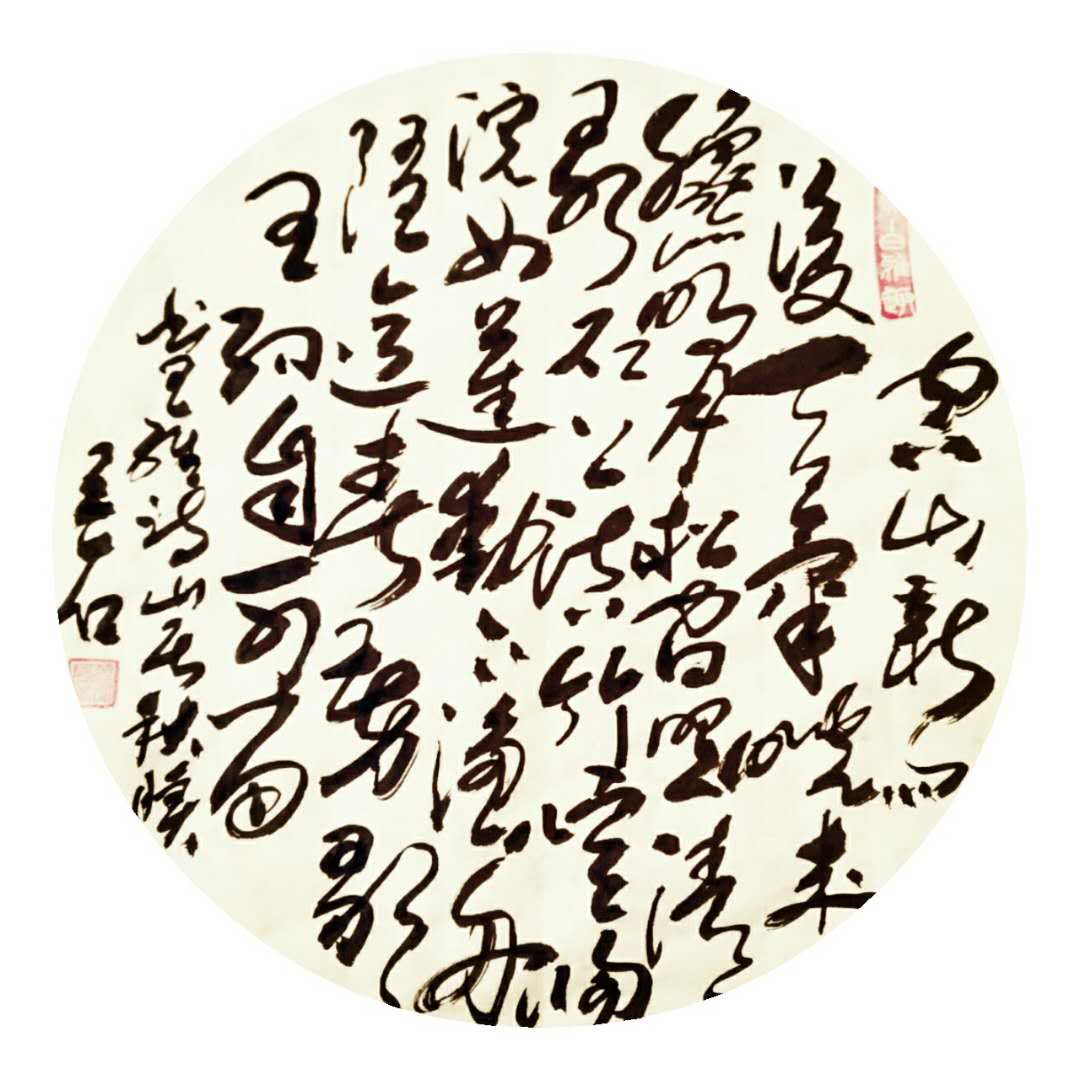 空山新雨
後天氣晚來
秋明月松間照清
泉石上流竹喧歸
浣女蓮動下漁舟
隨意春芳歇
王孫自可留
書王維詩山居秋暝